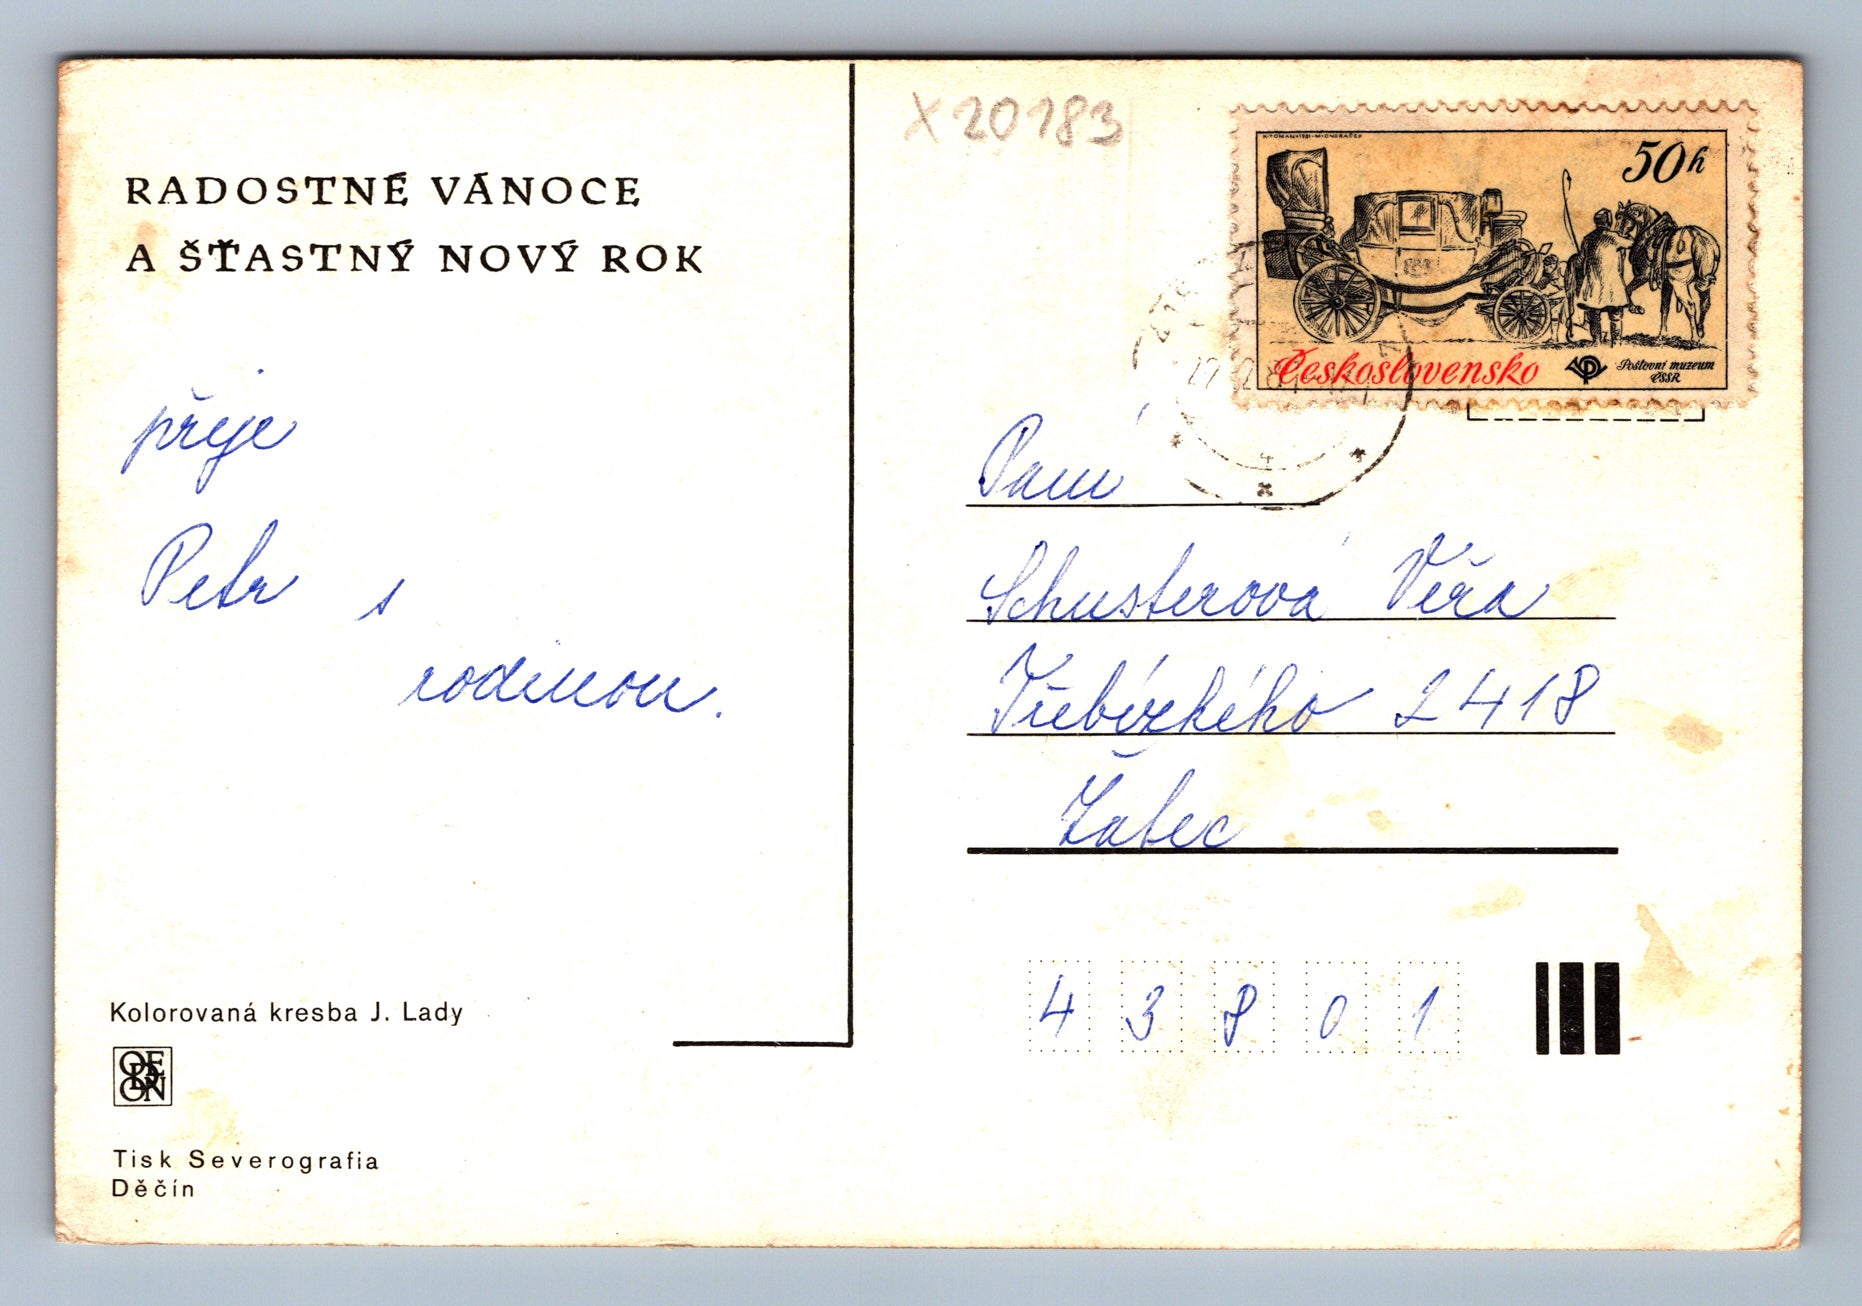 RADOSTNÉ VÁNOCE
A ŠŤASTNÝ NOVÝ ROK
přeje
Petr s
rodinou.
Kolorovaná kresba J. Lady
ODEON
Tisk Severografia
Děčín
X20183
K. TOMAN • 1981 • M. ONDRÁČEK
50h
Československo
Poštovní muzeum
ČSSR
Paní
Schusterová Věra
Třebízkého 2418
Žatec
43801